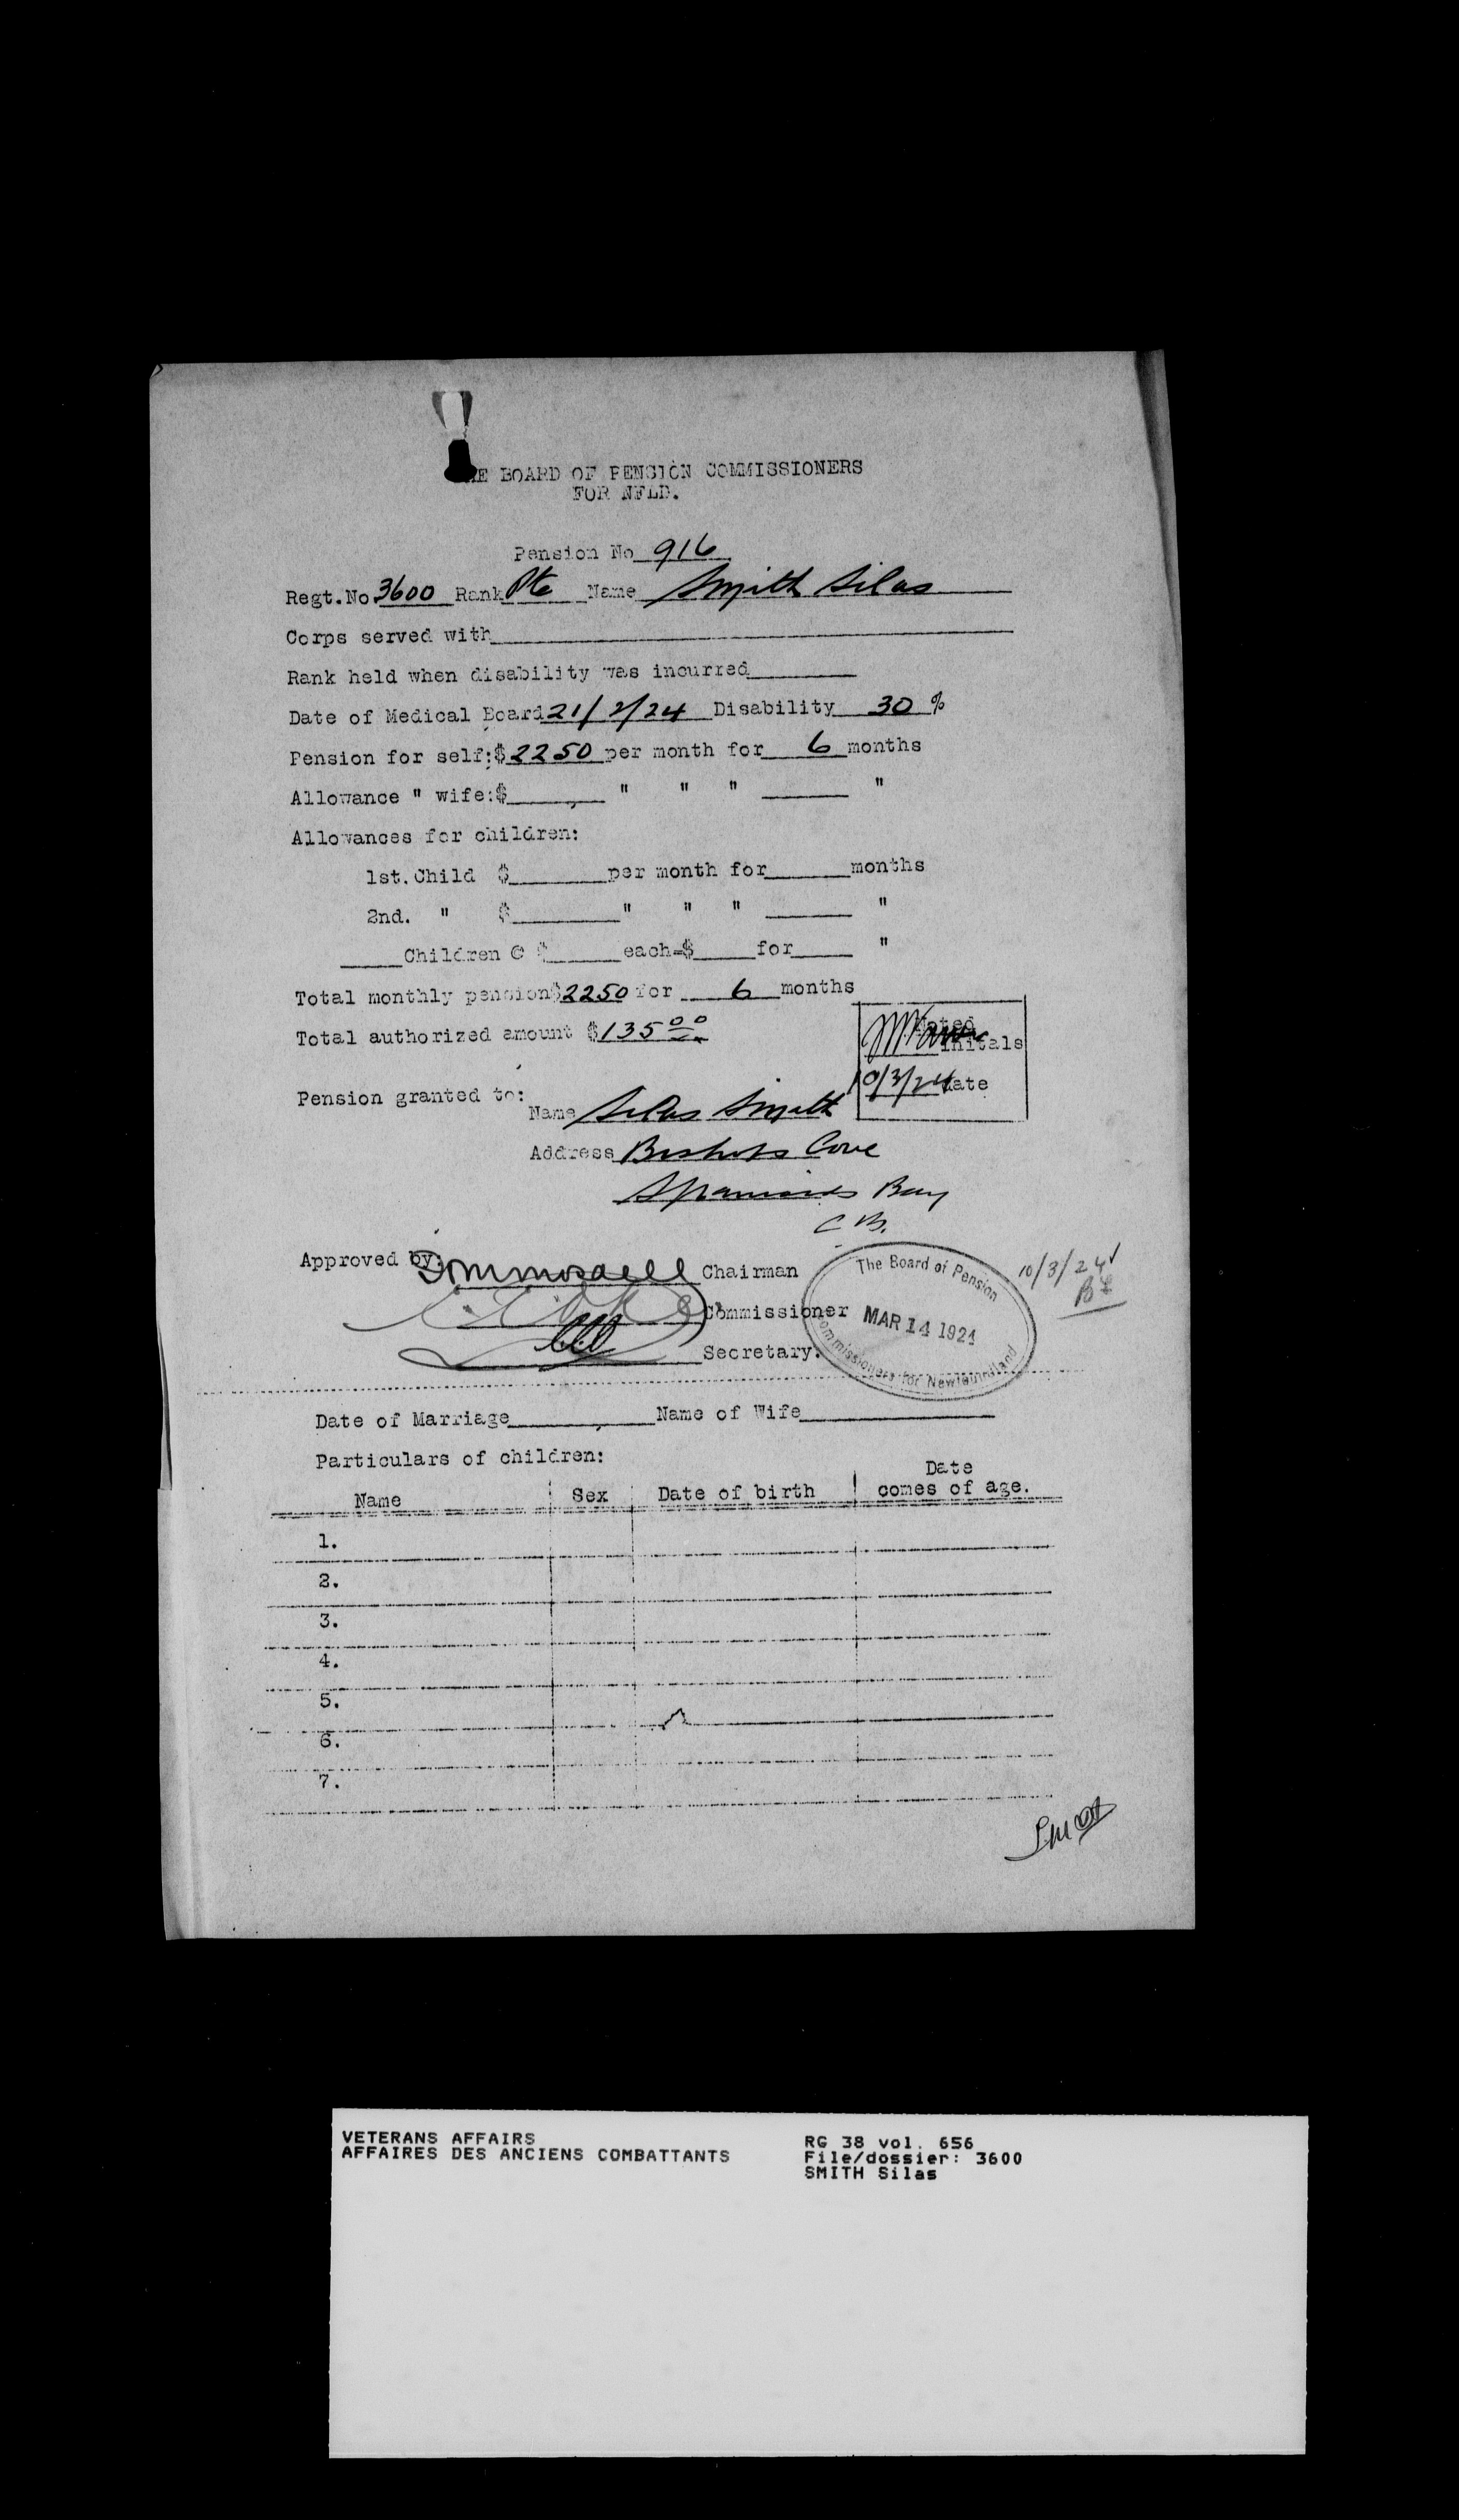 THE BOARD OF PENSION COMMISSIONERS
FOR NFLD.
Pension No 916
Regt.No 3600 Rank Pte Name Smith Silas
Corps served with
Rank held when disability was incurred
Date of Medical Board 21/2/24 Disability 30 %
Pension for self:$ 2250 per month for 6 months
Allowance " wife:$ " " " "
Allowances for children:
1st. Child $ per month for months
2nd. " $ " " " "
Children @ $ each=$ for "
Total monthly pension $2250 for 6 months
Total authorized amount $135 00
Noted
Initals
10/3/24 Date
Pension granted to:
Name Silas Smith
Address Bishops Cove
Spaniards Bay
C.B.
Approved by: Chairman
Commissioner
Secretary.
The Board of Pension
MAR 14 1924
Commissioners for Newfoundland
10/3/24
Date of Marriage Name of Wife
Particulars of children:
Name Sex Date of birth Date comes of age.
1.
2.
3.
4.
5.
6.
7.
VETERANS AFFAIRS
AFFAIRES DES ANCIENS COMBATTANTS
RG 38 vol. 656
File/dossier: 3600
SMITH Silas